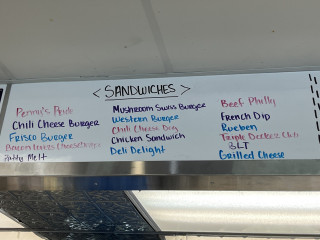 < SANDWICHES >
Penny's Pride
Chili Cheese Burger
Frisco Burger
Bacon Lovers Cheeseburger
Patty Melt
Mushroom Swiss Burger
Western Burger
Chili Cheese Dog
Chicken Sandwich
Deli Delight
Beef Philly
French Dip
Rueben
Triple Decker Club
BLT
Grilled Cheese